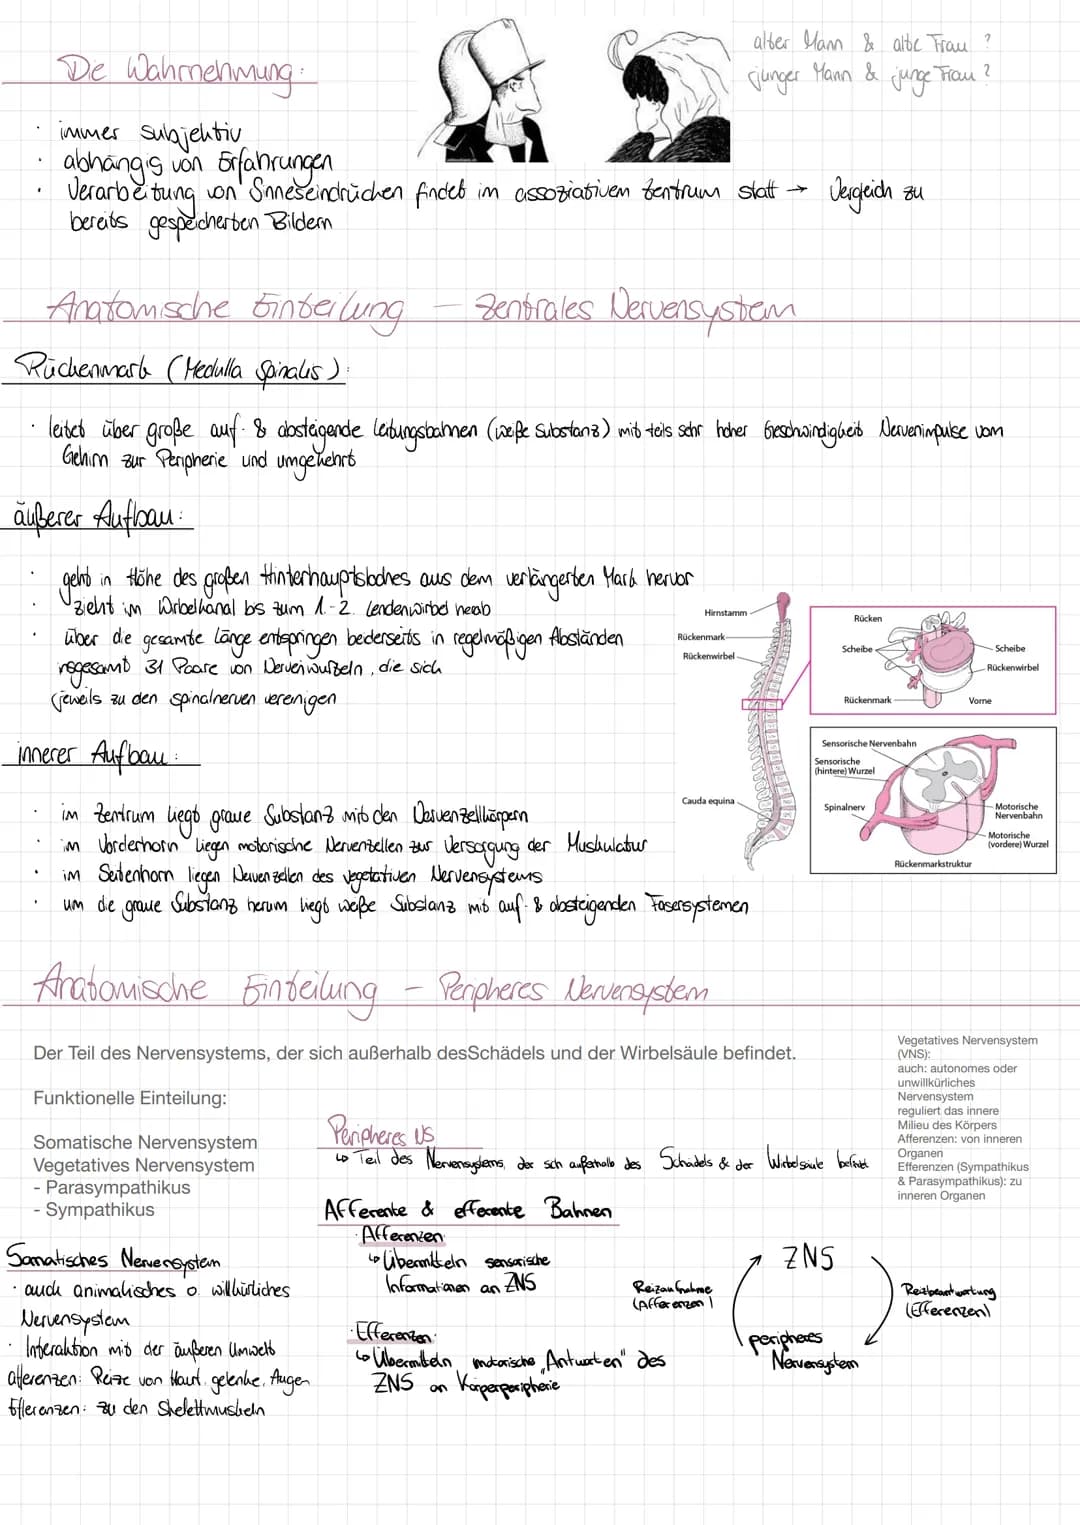 alter Mann & alte Frau ?
junger Mann & junge Frau ?
Die Wahrnehmung:
· immer subjektiv
· abhängig von Erfahrungen
· Verarbeitung von Sinneseindrücken findet im assoziativen Zentrum statt → Vergleich zu
bereits gespeicherten Bildern
Anatomische Einteilung – Zentrales Nervensystem
Rückenmark (Medulla Spinalis):
· leitet über große auf- & absteigende Leitungsbahnen (weiße Substanz) mit teils sehr hoher Geschwindigkeit Nervenimpulse vom
Gehirn zur Peripherie und umgekehrt
äußerer Aufbau:
· geht in Höhe des großen Hinterhauptsloches aus dem verlängerten Mark hervor
· zieht im Wirbelkanal bis zum 1.-2. Lendenwirbel herab
· über die gesamte Länge entspringen beiderseits in regelmäßigen Abständen
insgesamt 31 Paare von Nervenwurzeln, die sich
jeweils zu den Spinalnerven vereinigen
Hirnstamm
Rückenmark
Rückenwirbel
Cauda equina
Rücken
Scheibe
Scheibe
Rückenwirbel
Rückenmark
Vorne
Sensorische Nervenbahn
Sensorische
(hintere) Wurzel
Spinalnerv
Motorische
Nervenbahn
Motorische
(vordere) Wurzel
Rückenmarkstruktur
innerer Aufbau:
· im Zentrum liegt graue Substanz mit den Nervenzellkörpern
· im Vorderhorn liegen motorische Nervenzellen zur Versorgung der Muskulatur
· im Seitenhorn liegen Nervenzellen des vegetativen Nervensystems
· um die graue Substanz herum liegt weiße Substanz mit auf- & absteigenden Fasersystemen
Anatomische Einteilung – Peripheres Nervensystem
Der Teil des Nervensystems, der sich außerhalb desSchädels und der Wirbelsäule befindet.
Funktionelle Einteilung:
Somatische Nervensystem
Vegetatives Nervensystem
- Parasympathikus
- Sympathikus
Vegetatives Nervensystem
(VNS):
auch: autonomes oder
unwillkürliches
Nervensystem
reguliert das innere
Milieu des Körpers
Afferenzen: von inneren
Organen
Efferenzen (Sympathikus
& Parasympathikus): zu
inneren Organen
Peripheres NS
↳ Teil des Nervensystems, der sich außerhalb des Schädels & der Wirbelsäule befindet
Afferente & efferente Bahnen
· Afferenzen:
↳ Übermitteln sensorische
Informationen an ZNS
· Efferenzen:
↳ Übermitteln motorische „Antworten" des
ZNS an Körperperipherie
Somatisches Nervensystem
· auch animalisches o. willkürliches
Nervensystem
· Interaktion mit der äußeren Umwelt
afferenzen: Reize von Haut, gelenke, Augen
Efferenzen: zu den Skelettmuskeln
ZNS
Reizaufnahme
(Afferenzen)
Reizbeantwortung
(Efferenzen)
peripheres
Nervensystem